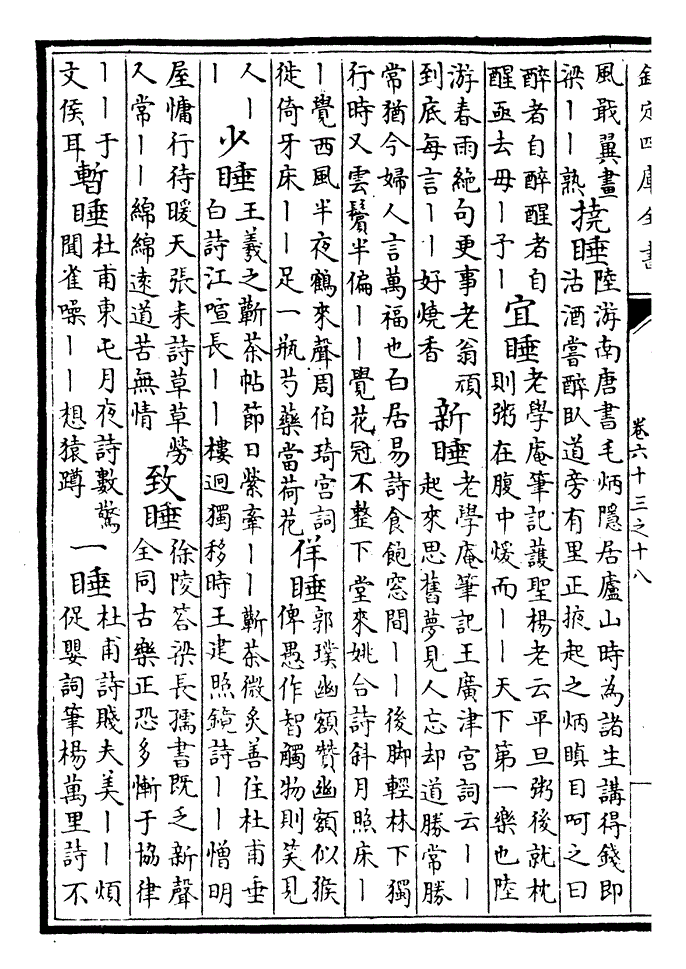 欽定四庫全書 卷六十三之十八
風戢翼畫
梁丨丨熟
撓睡
陸游南唐書毛炳隱居廬山時為諸生講得錢即
沽酒嘗醉臥道旁有里正掖起之炳瞋目呵之曰
醉者自醉醒者自
醒亟去毋丨予丨
宜睡
老學庵筆記護聖楊老云平旦粥後就枕
則粥在腹中煖而丨丨天下第一樂也陸
游春雨絶句更事老翁頑
到底每言丨丨好燒香
新睡
老學庵筆記王廣津宮詞云丨丨
起來思舊夢見人忘却道勝常勝
常猶今婦人言萬福也白居易詩食飽窓間丨丨後脚輕林下獨
行時又雲鬢半偏丨丨覺花冠不整下堂來姚合詩斜月照床丨
丨覺西風半夜鶴來聲周伯琦宮詞
徙倚牙床丨丨足一瓶芍藥當荷花
佯睡
郭璞幽額贊幽額似猴
俾愚作智觸物則笑見
人丨
丨
少睡
王羲之蘄茶帖節日縈牽丨丨蘄茶微炙善住杜甫垂
白詩江喧長丨丨樓迥獨移時王建照鏡詩丨丨憎明
屋慵行待暖天張耒詩草草勞
人常丨丨綿綿遠道苦無情
致睡
徐陵答梁長孺書既乏新聲
全同古樂正恐多慚于協律
丨丨于
文侯耳
暫睡
杜甫東屯月夜詩數驚
聞雀噪丨丨想猿蹲
一睡
杜甫詩賤夫美丨丨煩
促嬰詞筆楊萬里詩不